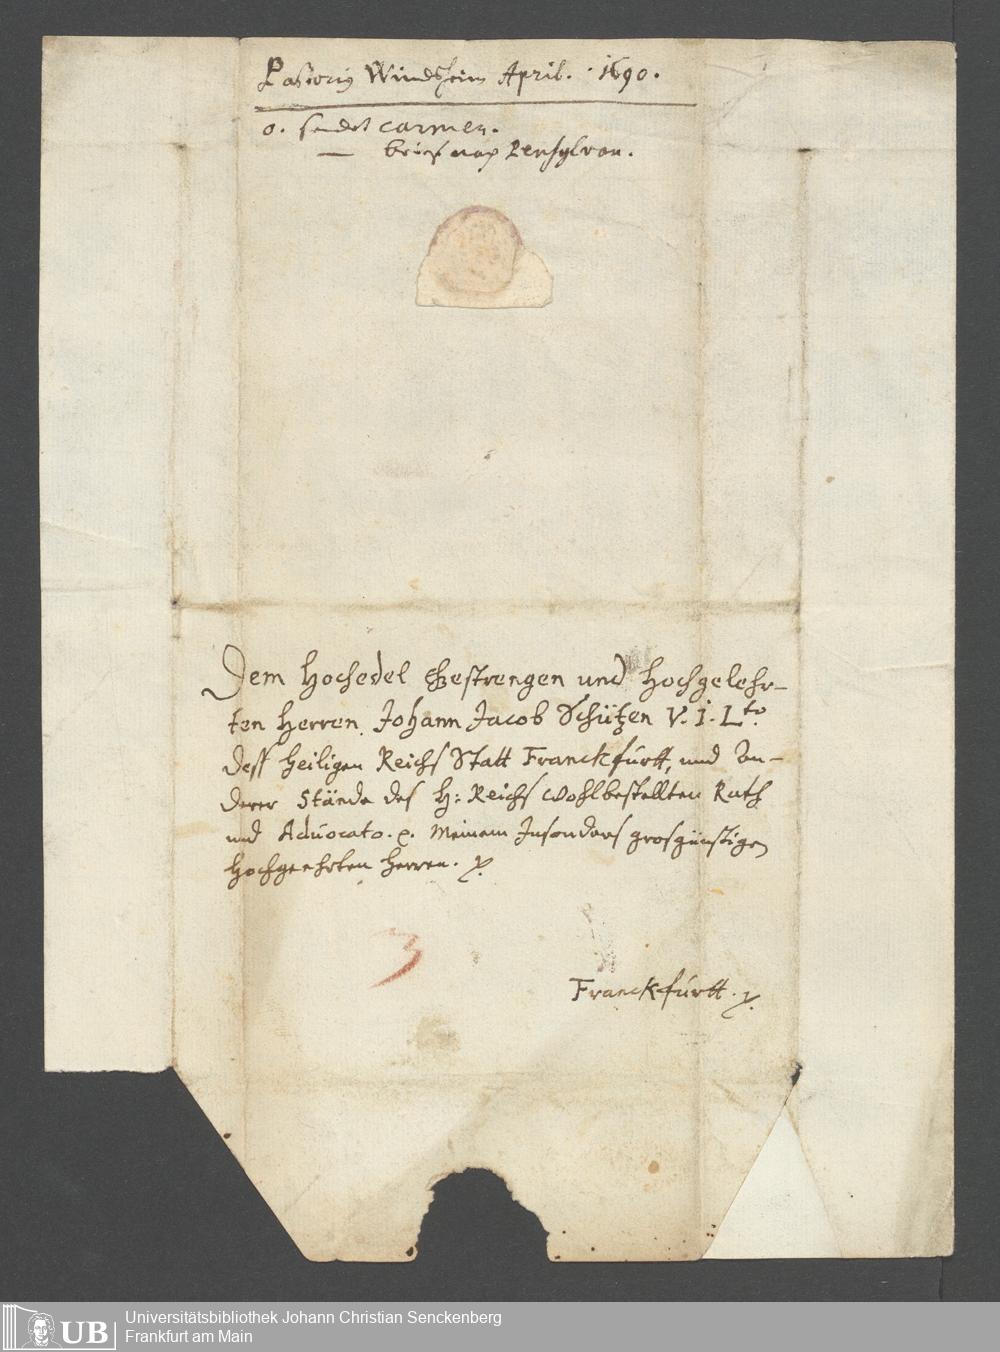 Pastorius Windsheim April. 1690.
o. sendet carmen.
— brief nach Pensylvan.
Dem Hochedel Gestrengen und Hochgelehr-
ten Herren Johann Jacob Schützen V. I. Lto.
dess Heiligen Reichs Statt Franckfurtt, und an-
derer Stände des H: Reichs wohlbestellten Rath
und Advocato. p. Meinem Insonders grosgünstigen
Hochgeehrten Herren. p.
3
Franckfurtt. p.
UB
Universitätsbibliothek Johann Christian Senckenberg
Frankfurt am Main